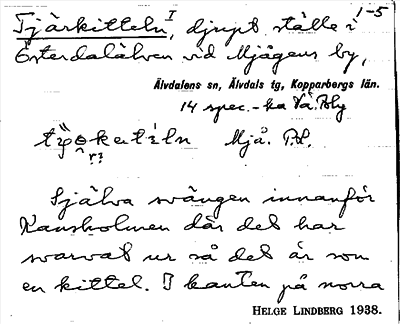 1-5
Tjärkitteln I, djupt ställe i
Österdalälven vid Mjågens by,
Älvdalens sn, Älvdals tg, Kopparbergs län.
14 spec. - ka Vä.
Mjå.
Själva svängen innanför
Kansholmen där det har
svarvat ur så det är som
en kittel. I kanten på norra
HELGE LINDBERG 1938.